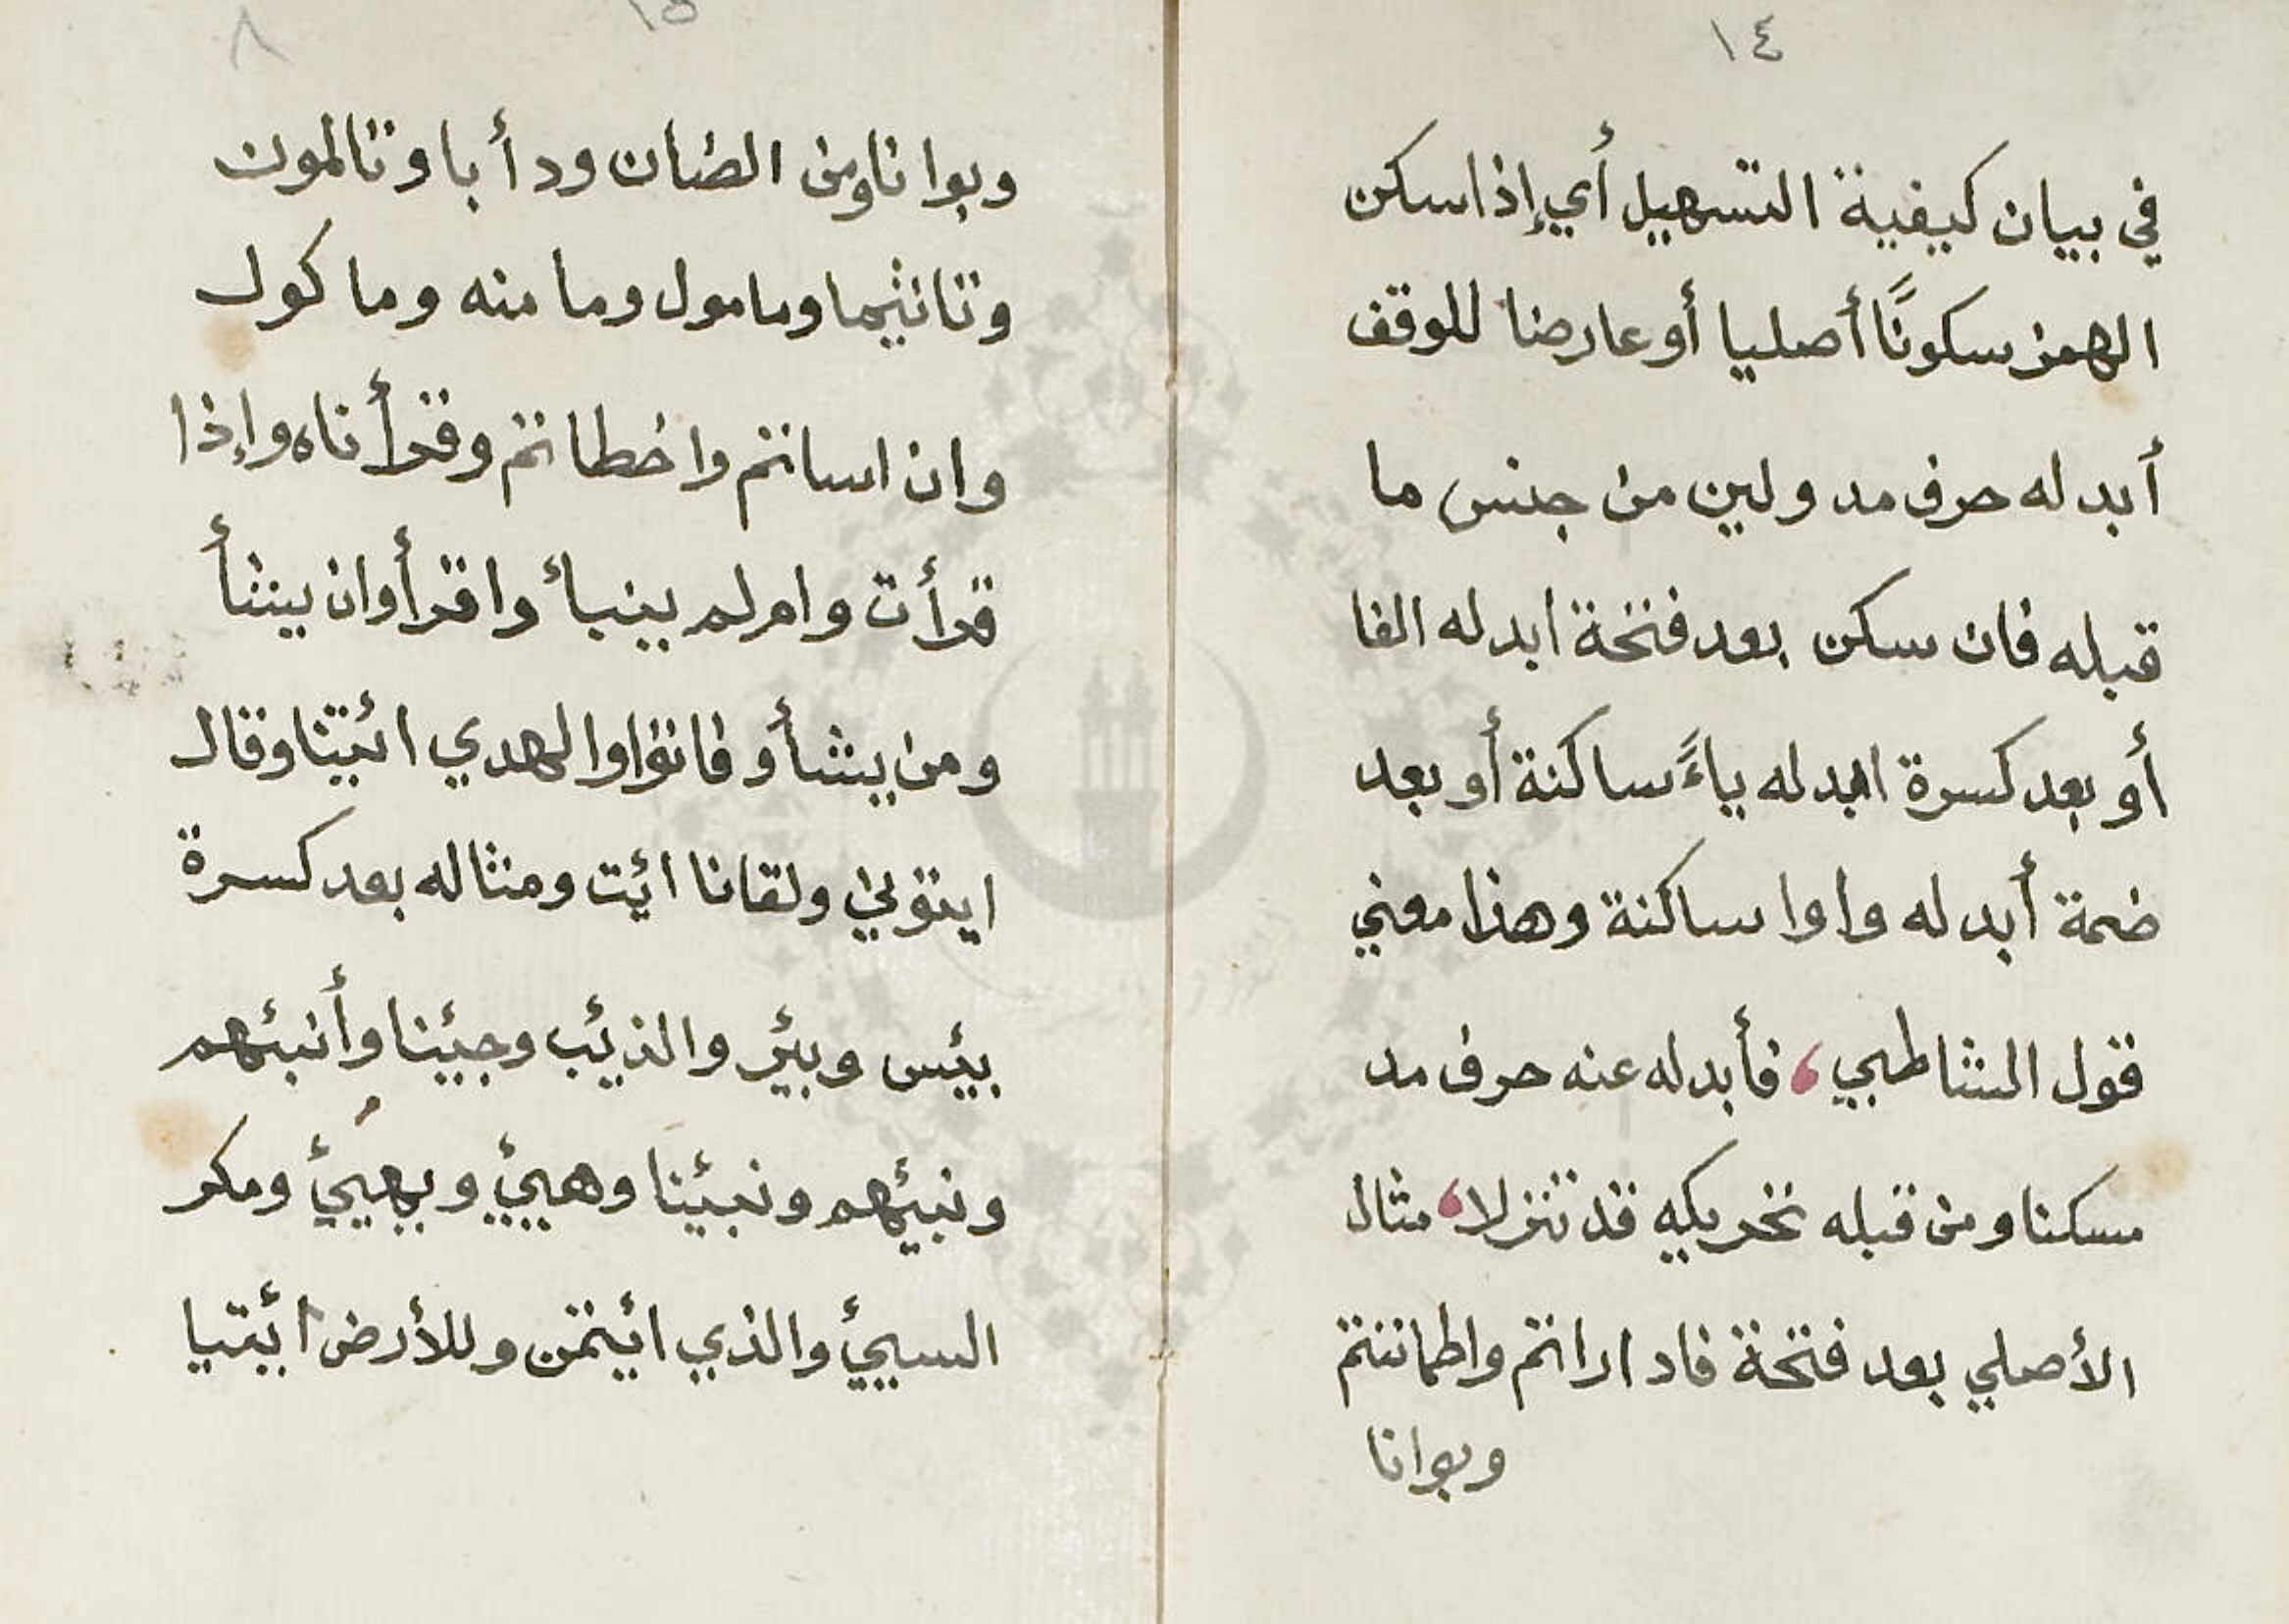 ١٤
في بيان كيفية التسهيل أي إذا سكن
الهمز سكونًا أصليا أو عارضا للوقف
أبدله حرف مد ولين من جنس ما
قبله فان سكن بعد فتحة ابدله الفا
أو بعد كسرة ابدله ياءً ساكنة أو بعد
ضمة أبدله واوا ساكنة وهذا معني
قول الشاطبي ، فأبدله عنه حرف مد
مسكنا ومن قبله تحريكه قد تنزلا ، مثال
الأصلي بعد فتحة فاداراتم واطماننتم
وبوانا
١٥
٨
وبوانا ومن الضان ودأبا وتالمون
وتاثيما ومامول ومامنه وماكول
وان اساتم واخطاتم وقرأناه وإذا
قرأت وامرلم ينبأ واقرأ وان يشأ
ومن يشأ و فاتوا والهدي ائتنا وقال
ايتوني ولقانا ائت ومثاله بعد كسرة
بئس وبئر والذئب وجئنا وأنبئهم
ونبئهم ونبئنا وهيئ ويهيئ ومكر
السيئ والذي ائتمن وللأرض ائتيا